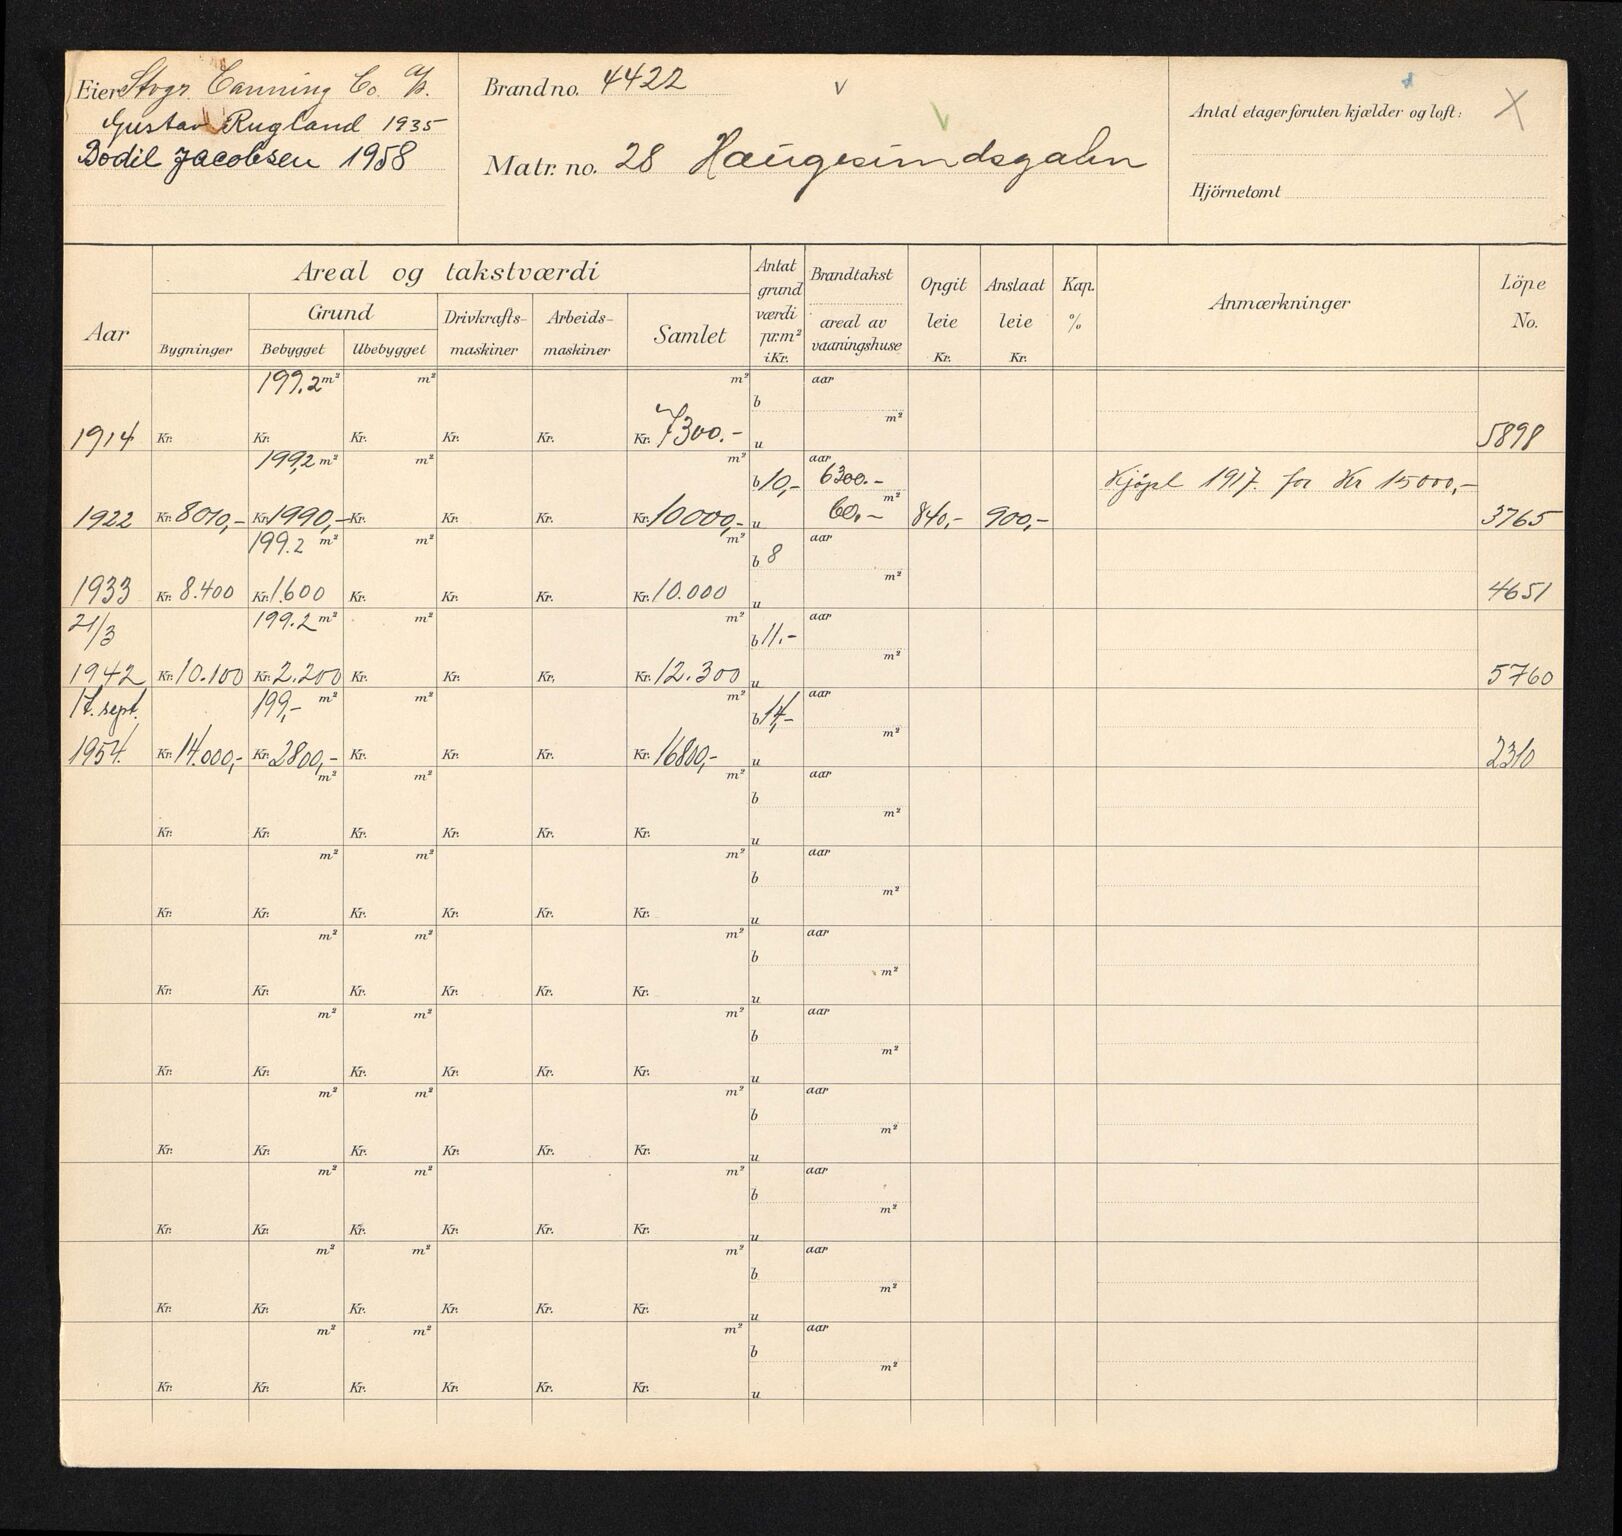 Eier Stvgr. Canning Co. A/S.
Gustav Rugland 1935
Bodil Jacobsen 1958
Brand no. 4422 v
Matr. no. 28 Haugesundsgaten
Antal etager foruten kjælder og loft: X
Hjörnetomt
Aar
Areal og takstværdi
Bygninger
Grund
Bebygget Ubebygget
Drivkraftsmaskiner
Arbeidsmaskiner
Samlet
Antat grundværdi pr. m² i Kr.
Brandtakst
areal av vaaningshuse
Opgit leie Kr.
Anslaat leie Kr.
Kap. %
Anmærkninger
Löpe No.
199.2 m² m² m² b aar m²
1914 Kr. Kr. Kr. Kr. Kr. Kr. 7300.- u 5898
199,2 m² m² m² b 10,- aar 6300.- Kjøpt 1917 for Kr 15000,-
1922 Kr. 8010,- Kr. 1990,- Kr. Kr. Kr. Kr. 10000,- u m² 60.- 840,- 900,- 3765
199.2 m² m² m² b 8 aar m²
1933 Kr. 8.400 Kr. 1.600 Kr. Kr. Kr. Kr. 10.000 u 4651
21/3 199.2 m² m² m² b 11.- aar m²
1942 Kr. 10.100 Kr. 2.200 Kr. Kr. Kr. Kr. 12.300 u 5760
17. sept. 199,- m² m² m² b 14,- aar m²
1954. Kr. 14.000,- Kr. 2800,- Kr. Kr. Kr. Kr. 16800,- u 2310
m² m² m² b aar m²
Kr. Kr. Kr. Kr. Kr. Kr. u
m² m² m² b aar m²
Kr. Kr. Kr. Kr. Kr. Kr. u
m² m² m² b aar m²
Kr. Kr. Kr. Kr. Kr. Kr. u
m² m² m² b aar m²
Kr. Kr. Kr. Kr. Kr. Kr. u
m² m² m² b aar m²
Kr. Kr. Kr. Kr. Kr. Kr. u
m² m² m² b aar m²
Kr. Kr. Kr. Kr. Kr. Kr. u
m² m² m² b aar m²
Kr. Kr. Kr. Kr. Kr. Kr. u
m² m² m² b aar m²
Kr. Kr. Kr. Kr. Kr. Kr. u